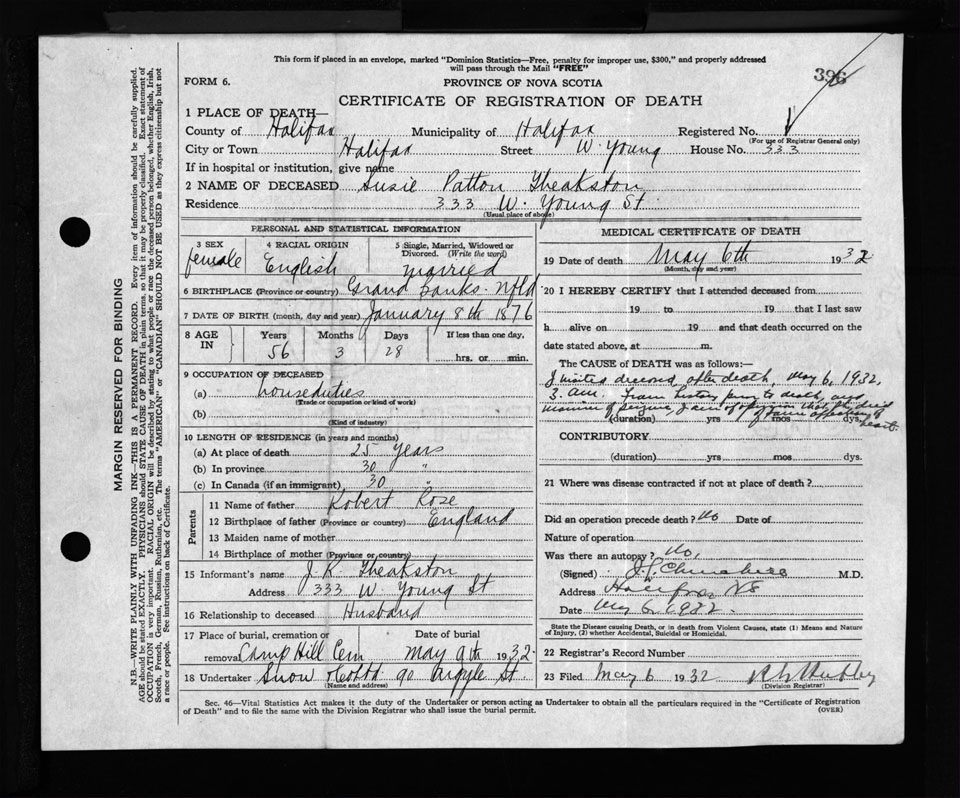 This form if placed in an envelope, marked "Dominion Statistics—Free, penalty for improper use, $300," and properly addressed
will pass through the Mail "FREE"
396
FORM 6.
PROVINCE OF NOVA SCOTIA
CERTIFICATE OF REGISTRATION OF DEATH
1 PLACE OF DEATH—
County of Halifax Municipality of Halifax Registered No.
(For use of Registrar General only)
City or Town Halifax Street W. Young House No. 333
If in hospital or institution, give name
2 NAME OF DECEASED Susie Patton Theakston
Residence 333 W. Young St.
(Usual place of abode)
PERSONAL AND STATISTICAL INFORMATION
3 SEX 4 RACIAL ORIGIN 5 Single, Married, Widowed or Divorced. (Write the word)
female English married
6 BIRTHPLACE (Province or country) Grand Banks. Nfld
7 DATE OF BIRTH (month, day and year) January 8th 1876
8 AGE IN Years Months Days If less than one day.
56 3 28 hrs. or min.
9 OCCUPATION OF DECEASED
(a) house duties
(Trade or occupation or kind of work)
(b)
(Kind of industry)
10 LENGTH OF RESIDENCE (in years and months)
(a) At place of death 25 years
(b) In province 30 "
(c) In Canada (if an immigrant) 30 "
Parents
11 Name of father Robert Rose
12 Birthplace of father (Province or country) England
13 Maiden name of mother
14 Birthplace of mother (Province or country)
15 Informant's name J. R. Theakston
Address 333 W. Young St
16 Relationship to deceased Husband
17 Place of burial, cremation or removal Camp Hill Cem Date of burial May 9th 1932.
18 Undertaker Snow & Co Ltd 90 Argyle St.
(Name and address)
MEDICAL CERTIFICATE OF DEATH
19 Date of death May 6th 1932
(Month, day and year)
20 I HEREBY CERTIFY that I attended deceased from
19 to 19 that I last saw
h alive on 19 and that death occurred on the
date stated above, at m.
The CAUSE OF DEATH was as follows:—
I visited deceased, after death, May 6, 1932,
3. am. From history prior to death, and
manner of seizure, I am of opinion that she died
of some affection of heart.
(duration) yrs mos dys.
CONTRIBUTORY
(duration) yrs mos dys.
21 Where was disease contracted if not at place of death?
Did an operation precede death? No Date of
Nature of operation
Was there an autopsy? No.
(Signed) M.D.
Address Halifax NS
Date May 6. 1932.
State the Disease causing Death, or in death from Violent Causes, state (1) Means and Nature
of Injury, (2) whether Accidental, Suicidal or Homicidal.
22 Registrar's Record Number
23 Filed May 6 1932
(Division Registrar)
Sec. 46—Vital Statistics Act makes it the duty of the Undertaker or person acting as Undertaker to obtain all the particulars required in the "Certificate of Registration
of Death" and to file the same with the Division Registrar who shall issue the burial permit.
(OVER)
MARGIN RESERVED FOR BINDING
N.B.—WRITE PLAINLY WITH UNFADING INK—THIS IS A PERMANENT RECORD. Every item of information should be carefully supplied.
AGE should be stated EXACTLY. PHYSICIANS should STATE CAUSE OF DEATH in plain terms, so that it may be properly classified. Exact statement of
OCCUPATION is very important. RACIAL ORIGIN will be described by stating to what people or race the deceased person belonged, whether English, Irish,
Scotch, French, German, Russian, Ruthenian, etc. The terms "AMERICAN" or "CANADIAN" SHOULD NOT BE USED as they express citizenship but not
a race or people. See instructions on back of Certificate.